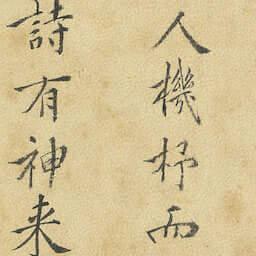 人機杼而
詩有神来